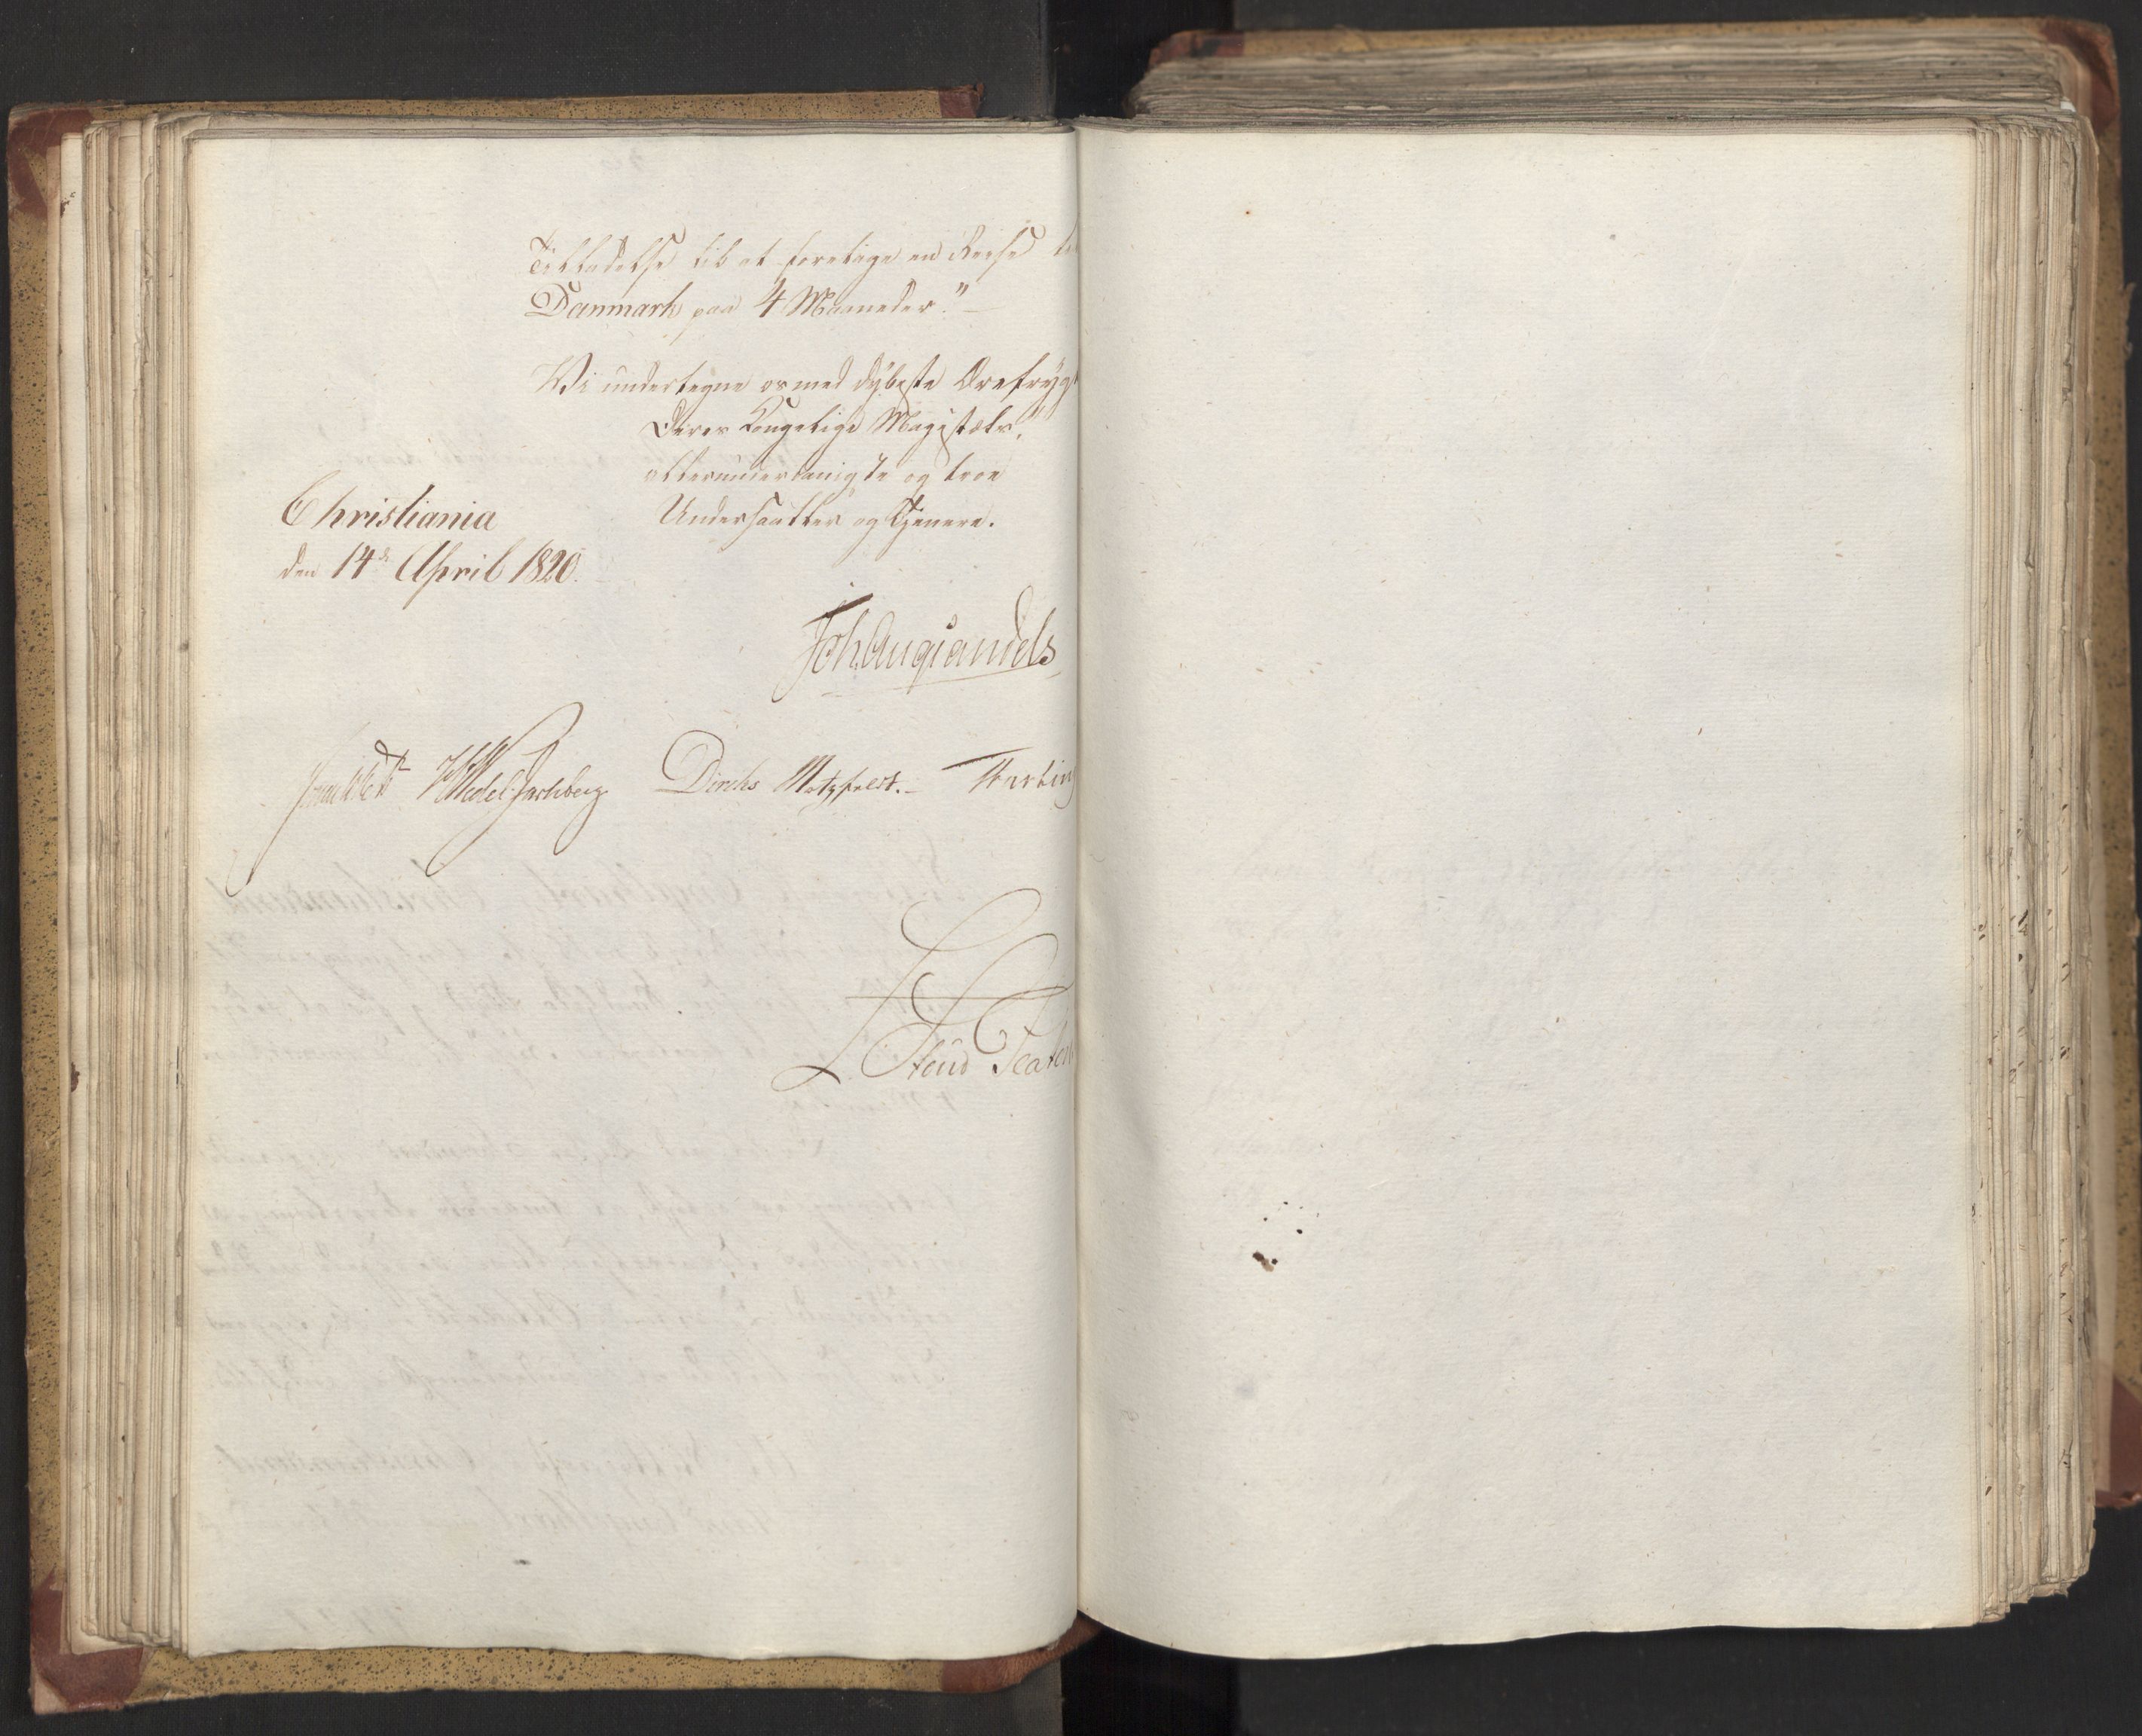 Tilladelse til at foretage en Reise
Danmark paa 4 Maaneder."
Vi undertegne os med dybeste Ærefrygt
Deres Kongelige Majestæts,
allerunderdanigste og troe
Undersaatter og Tjenere.
Christiania
den 14de April 1820.
Joh Aug Sandels
Sommerfelt HWedel Jarlsberg Diriks Motzfeldt. Fasting